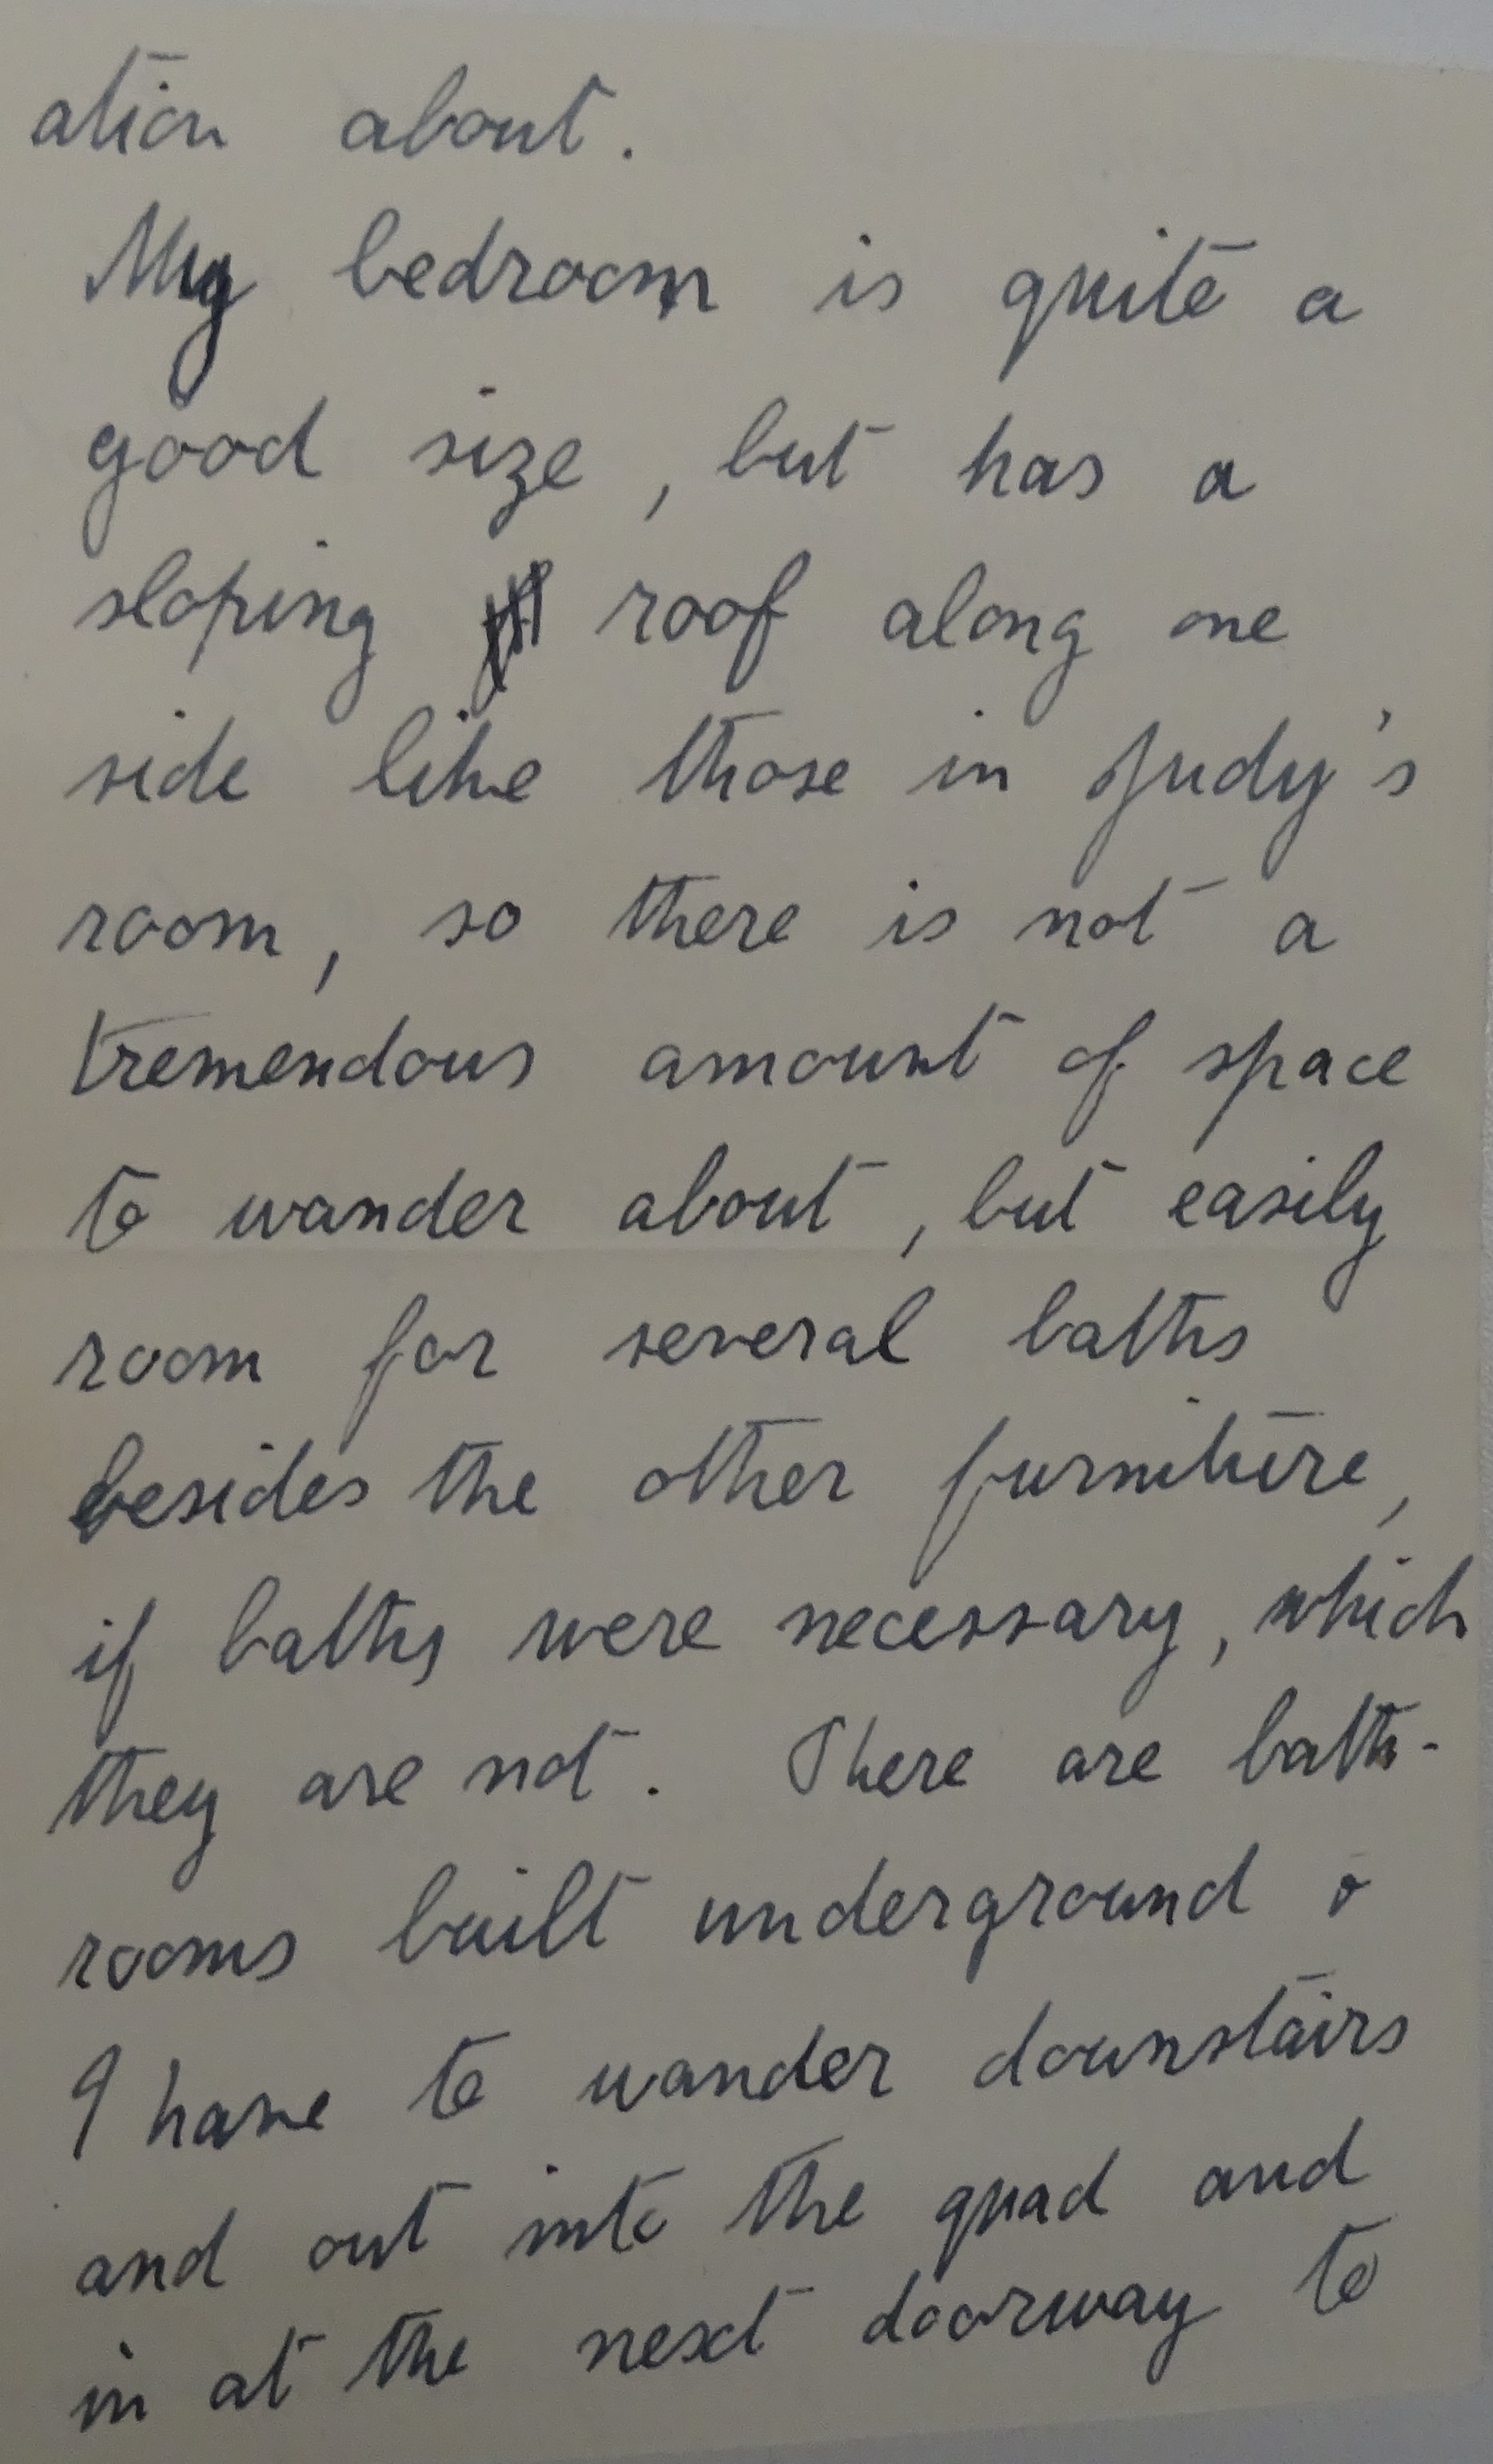 ation about.
My bedroom is quite a
good size, but has a
sloping roof along one
side like those in Judy's
room, so there is not a
tremendous amount of space
to wander about, but easily
room for several baths
besides the other furniture,
if baths were necessary, which
they are not. There are bath-
rooms built underground &
I have to wander downstairs
and out into the quad and
in at the next doorway to